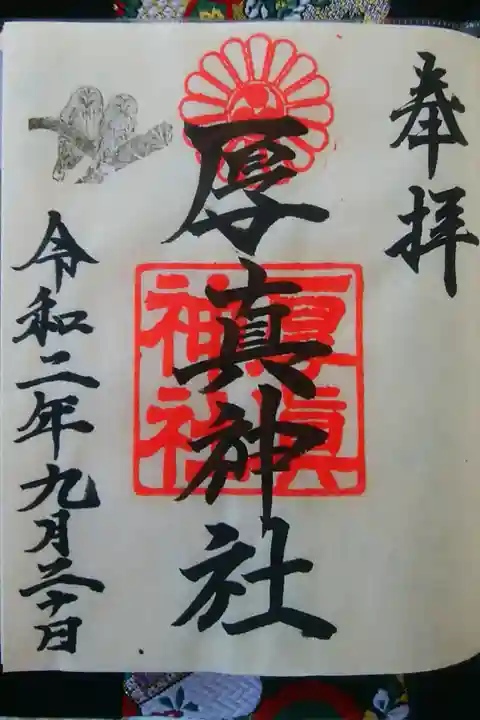 奉拝
厚真神社
厚眞
神社
令和二年九月二十日